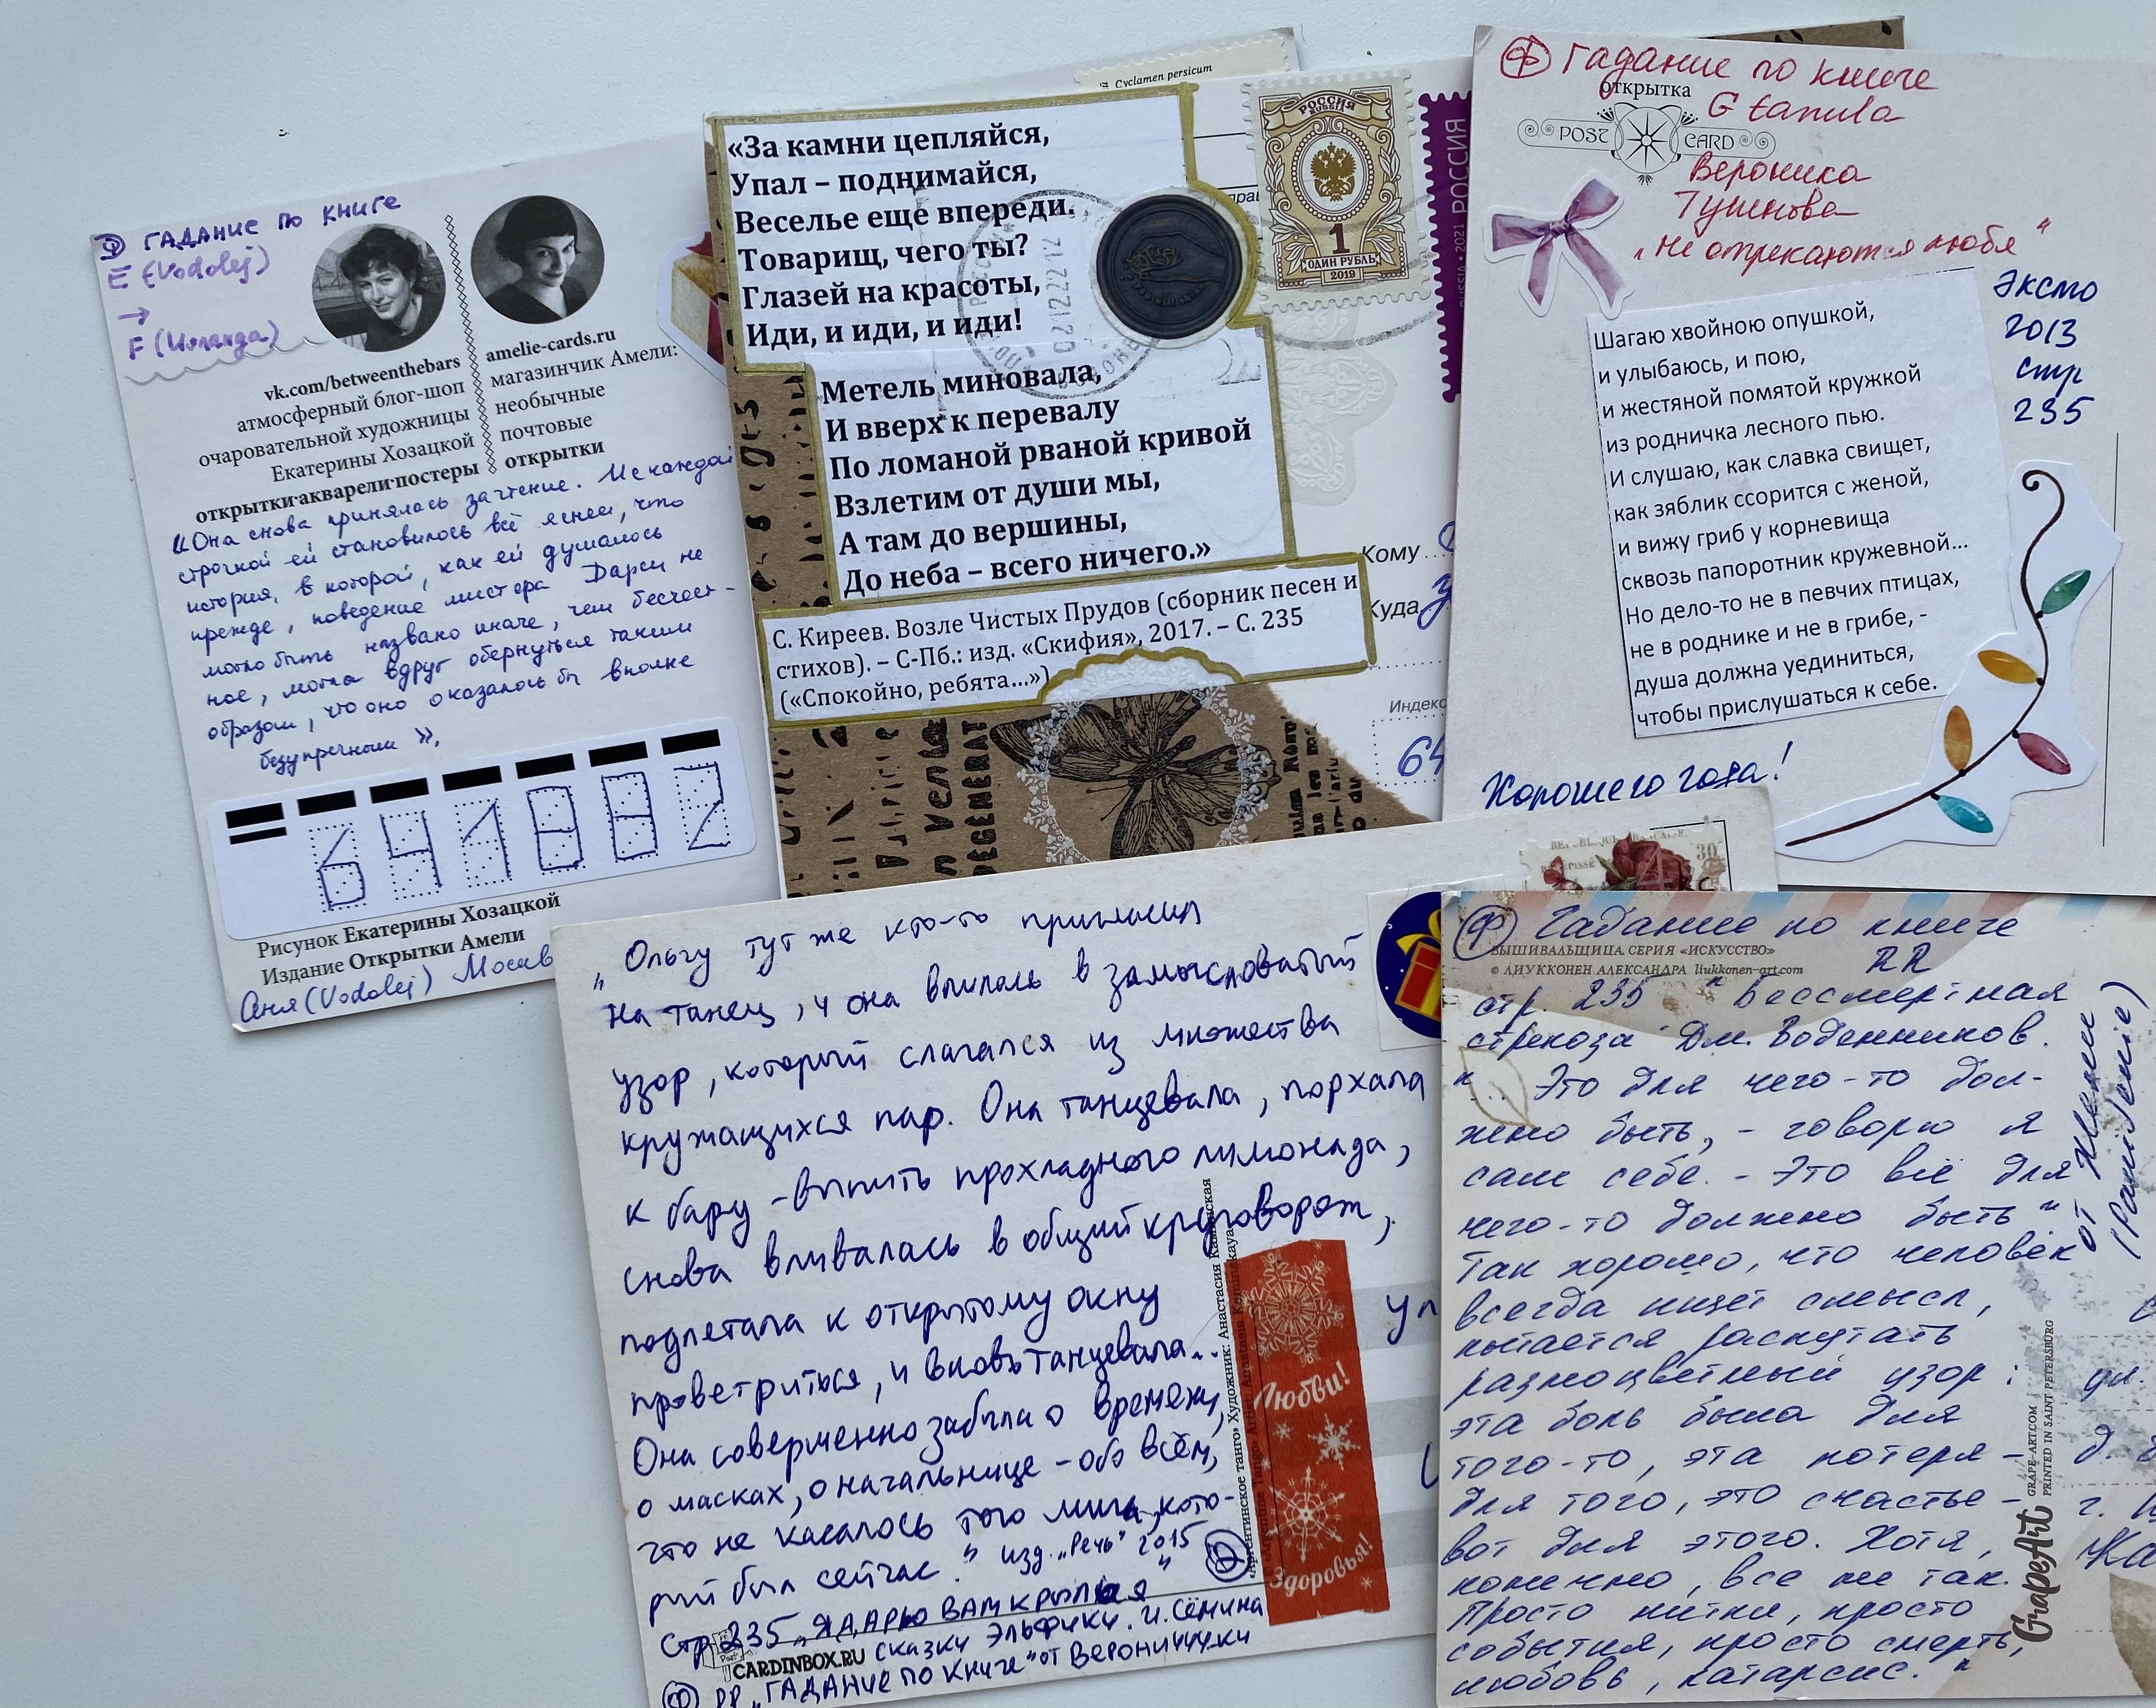 Ф ГАДАНИЕ ПО КНИГЕ
E (Vodolej)
→
vk.com/betweenthebars
атмосферный блог-шоп
очаровательной художницы
Екатерины Хозацкой
открытки·акварели·постеры
amelie-cards.ru
магазинчик Амели:
необычные
почтовые
открытки
«Она снова принялась за чтение. И с каждой
строчкой ей становилось всё яснее, что
история, в которой, как ей думалось
прежде, поведение мистера Дарси не
могло быть названо иначе, чем бесчест-
ное, могла вдруг обернуться таким
образом, что оно оказалось бы вполне
безупречным».
641882
Рисунок Екатерины Хозацкой
Издание Открытки Амели
Аня (Vodolej) Москв
Cyclamen persicum
«За камни цепляйся,
Упал – поднимайся,
Веселье еще впереди.
Товарищ, чего ты?
Глазей на красоты,
Иди, и иди, и иди!
Метель миновала,
И вверх к перевалу
По ломаной рваной кривой
Взлетим от души мы,
А там до вершины,
До неба – всего ничего.»
С. Киреев. Возле Чистых Прудов (сборник песен и
стихов). – С-Пб.: изд. «Скифия», 2017. – С. 235
(«Спокойно, ребята...»)
РОССИЯ
RUSSIA
1
ОДИН РУБЛЬ
2019
RUSSIA • 2021 РОССИЯ
Кому
Куда
Индекс
64
DEGENERAT
Ф Гадание по книге
открытка
G tanula
POST CARD
Вероника
Тушнова
„Не отрекаются любя"
Эксмо
2013
стр
235
Шагаю хвойною опушкой,
и улыбаюсь, и пою,
и жестяной помятой кружкой
из родничка лесного пью.
И слушаю, как славка свищет,
как зяблик ссорится с женой,
и вижу гриб у корневища
сквозь папоротник кружевной...
Но дело-то не в певчих птицах,
не в роднике и не в грибе, -
душа должна уединиться,
чтобы прислушаться к себе.
Хорошего года!
30
„Ольгу тут же кто-то пригласил
на танец, и она влилась в замысловатый
узор, который слагался из множества
кружащихся пар. Она танцевала, порхала
к бару - выпить прохладного лимонада,
снова вливалась в общий круговорот,
подлетала к открытому окну
проветриться, и вновь танцевала..
Она совершенно забыла о времени,
о масках, о начальнице - обо всём,
что не касалось того мига, кото-
рый был сейчас." изд. „Речь" 2015
Стр 235 „Я ДАРЮ ВАМ КРЫЛЬЯ"
СКАЗКИ ЭЛЬФИКИ. И. СЁМИНА
CARDINBOX.RU
Ф РР „ГАДАНИЕ ПО КНИГЕ" ОТ ВЕРОНИЧЧЧКИ
«Аргентинское танго» Художник: Анастасия Каминская
Любви!
Здоровья!
Ф Гадание по книге
ВЫШИВАЛЬЩИЦА. СЕРИЯ «ИСКУССТВО»
RR
© ЛИУККОНЕН АЛЕКСАНДРА liukkonen-art.com
стр. 235 "Бессмертная
стрекоза" Дм. Воденников.
"... Это для чего-то дол-
жно быть, - говорю я
сам себе. - Это всё для
чего-то должно быть"
Так хорошо, что человек
всегда ищет смысл,
пытается распутать
разноцветный узор:
эта боль была для
того-то, эта потеря -
для того, это счастье -
вот для этого. Хотя,
конечно, все не так.
Просто нитки, просто
события, просто смерть,
любовь, катарсис."
GrapeArt
GRAPE-ART.COM
PRINTED IN SAINT PETERSBURG